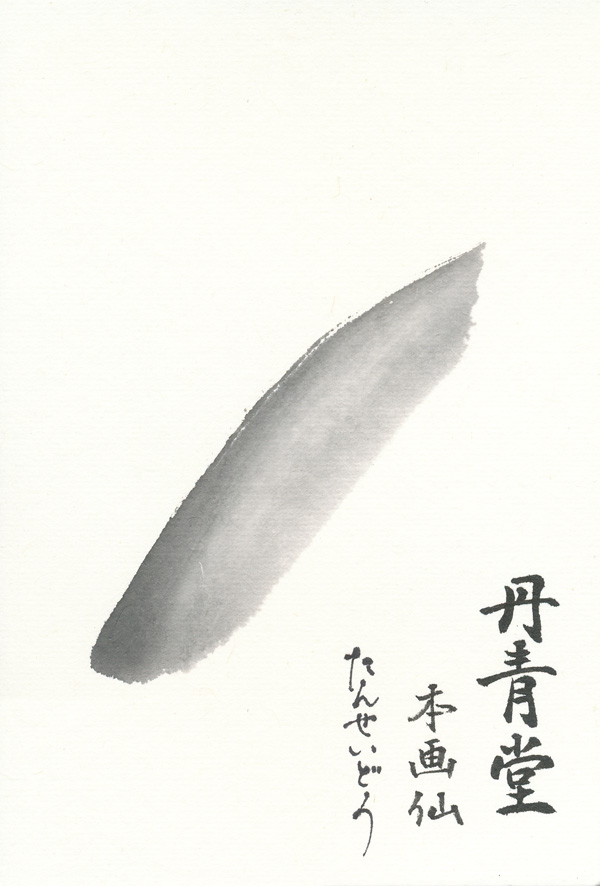 丹青堂
本画仙
たんせいどう